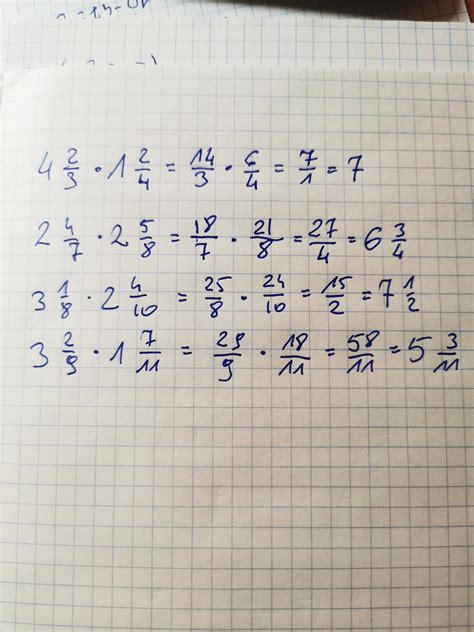 4 2/3 · 1 2/4 = 14/3 · 6/4 = 7/1 = 7
2 4/7 · 2 5/8 = 18/7 · 21/8 = 27/4 = 6 3/4
3 1/8 · 2 4/10 = 25/8 · 24/10 = 15/2 = 7 1/2
3 2/9 · 1 7/11 = 29/9 · 18/11 = 58/11 = 5 3/11